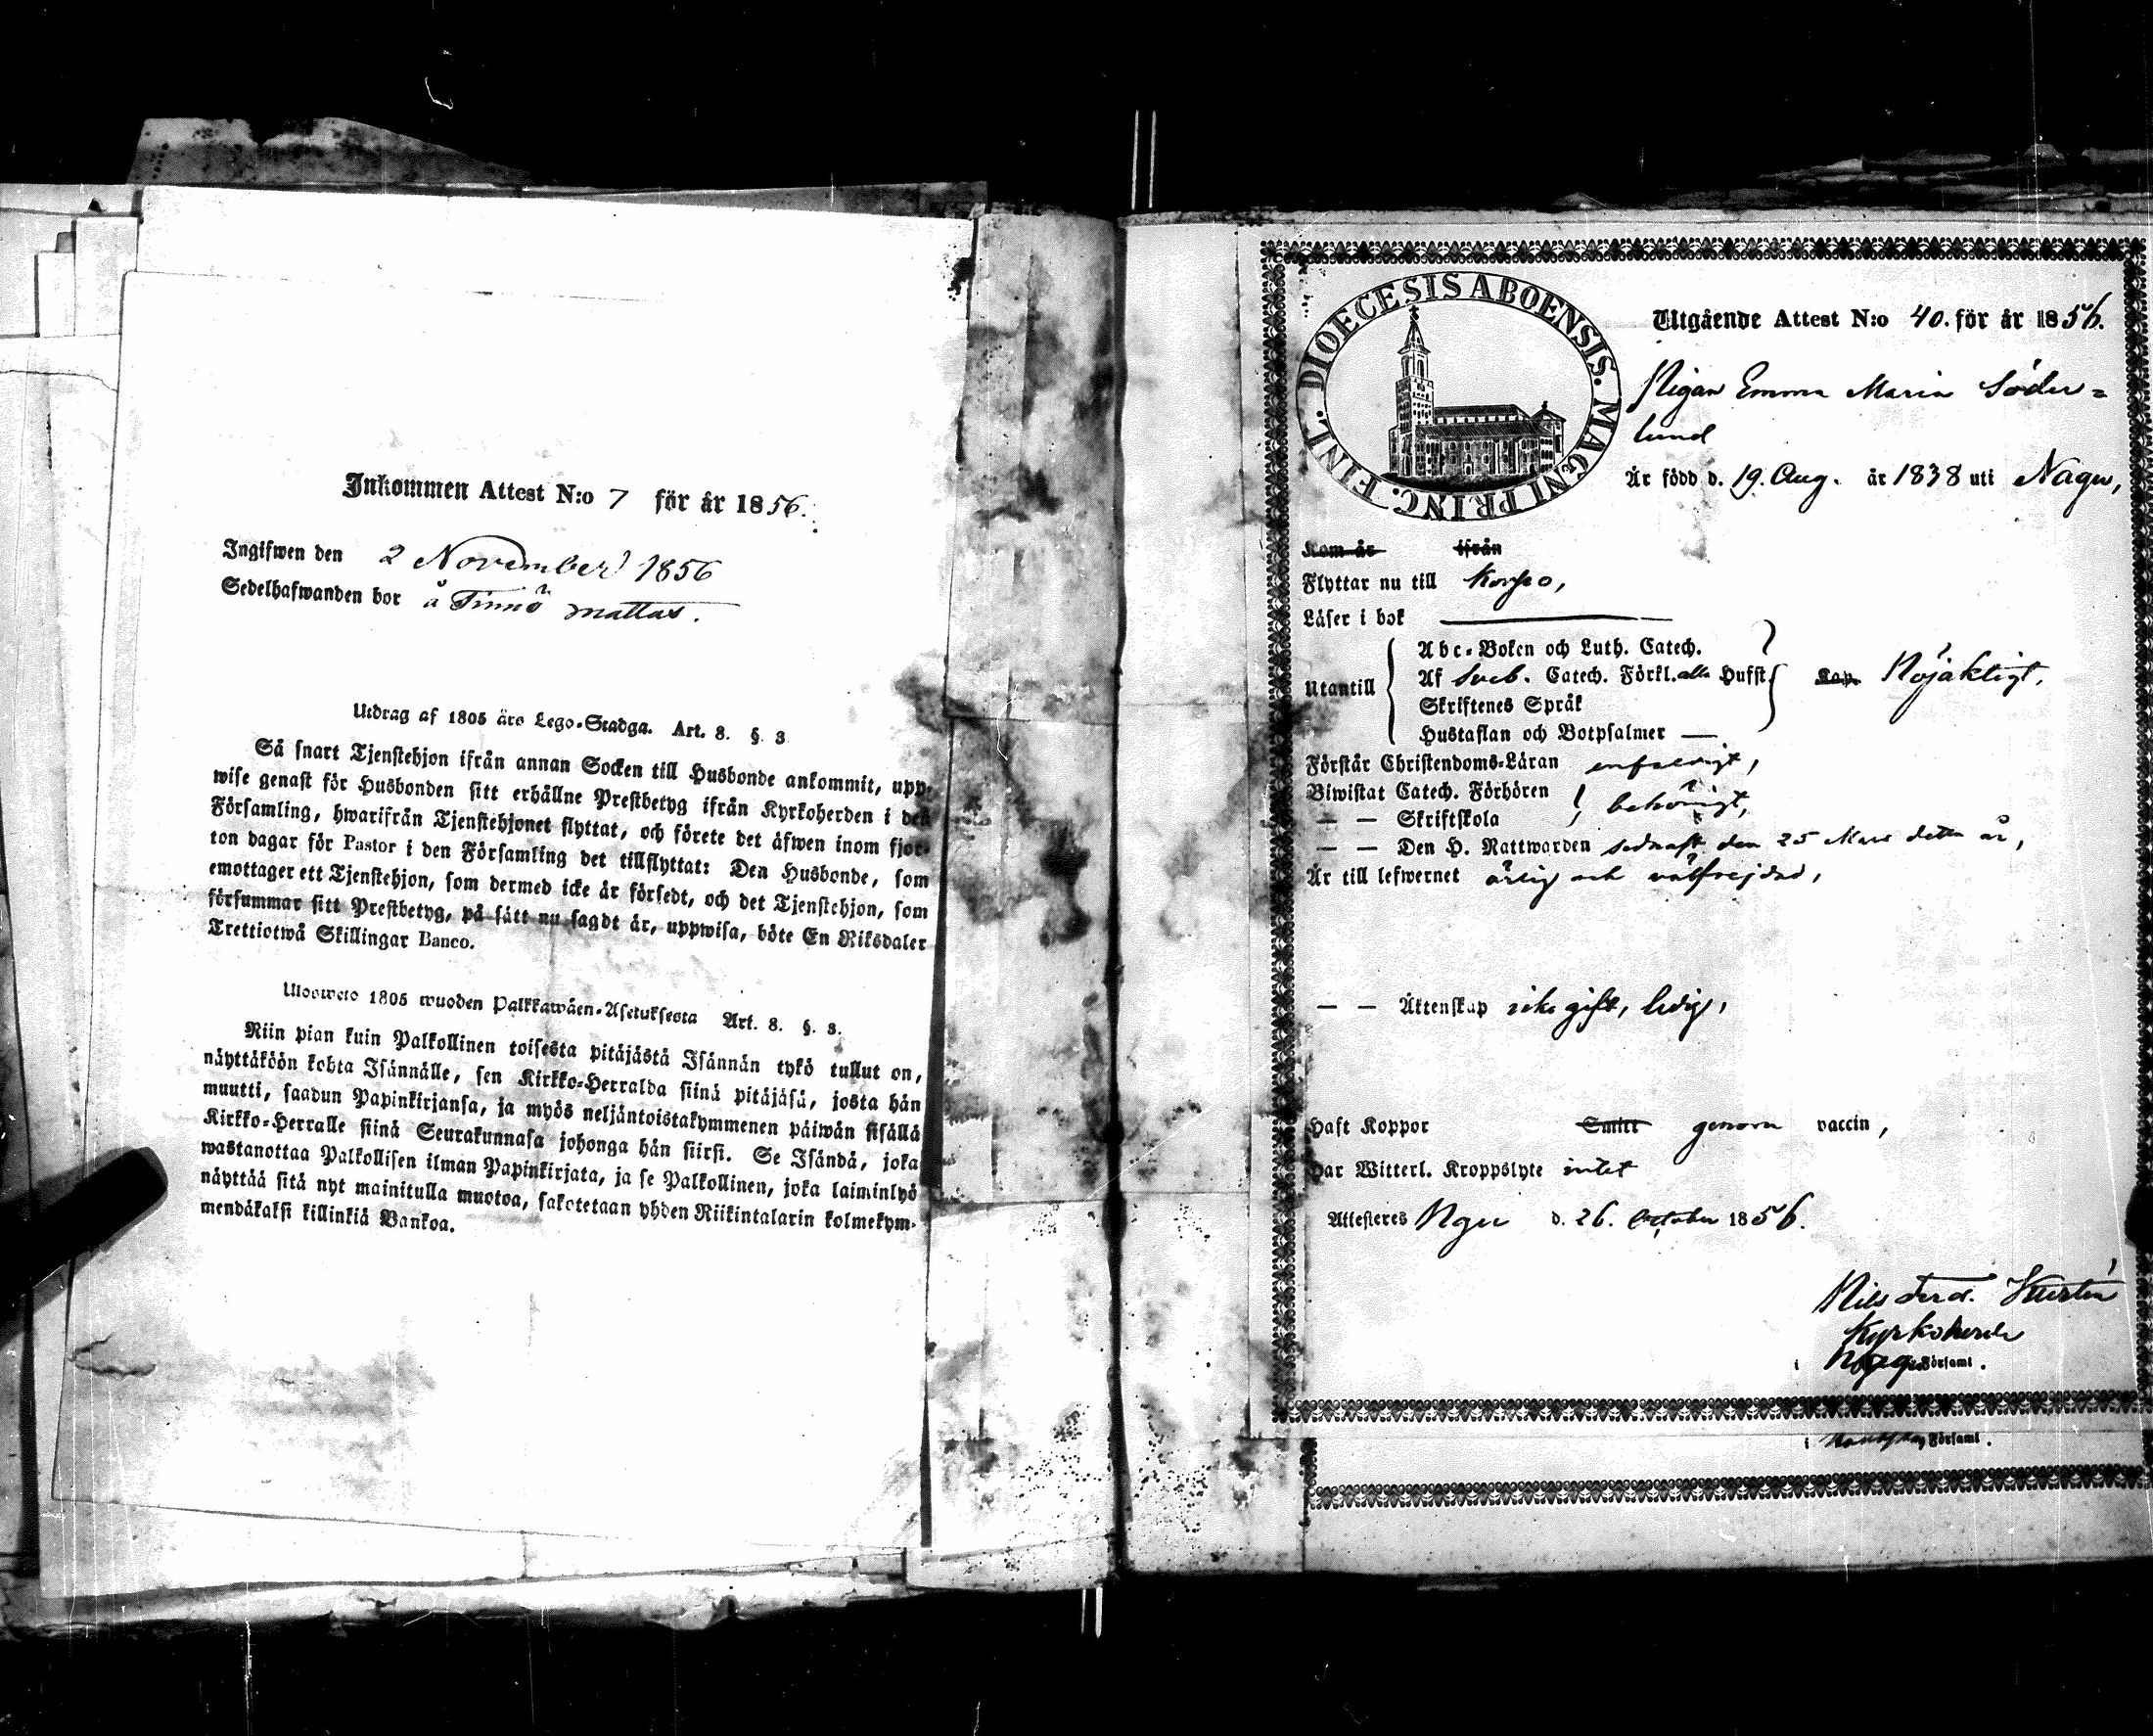 Inkommen Attest N:o 7 för år 1856.
Ingifwen den 2 November 1856
Sedelhafwanden bor å Finnö Mattas.
Utdrag af 1805 års Lego-Stadga. Art. 8. §. 3
Så snart Tjenstehjon ifrån annan Socken till Husbonde ankommit, upp-
wise genast för Husbonden sitt erhållne Prestbetyg ifrån Kyrkoherden i den
Församling, hwarifrån Tjenstehjonet flyttat, och förete det äfwen inom fjor-
ton dagar för Pastor i den Församling det tillflyttat: Den Husbonde, som
emottager ett Tjenstehjon, som dermed icke är försedt, och det Tjenstehjon, som
försummar sitt Prestbetyg, på sätt nu sagdt är, uppwisa, böte En Riksdaler
Trettiotwå Skillingar Banco.
Ulosweto 1805 wuoden Palkkawäen-Asetuksesta Art. 8. §. 3.
Niin pian kuin Palkollinen toisesta pitäjästä Isännän tykö tullut on,
näyttäköön kohta Isännälle, sen Kirkko-Herralda siinä pitäjäsä, josta hän
muutti, saadun Papinkirjansa, ja myös neljäntoistakymmenen päiwän sisällä
Kirkko-Herralle siinä Seurakunnasa johonga hän siirsi. Se Isändä, joka
wastanottaa Palkollisen ilman Papinkirjata, ja se Palkollinen, joka laiminlyö
näyttää sitä nyt mainitulla muotoa, sakotetaan yhden Riikintalarin kolmekym-
mendäkaksi killinkiä Bankoa.
FINL. DIOECESIS ABOENSIS. MAGNI PRINC.
Utgående Attest N:o 40. för år 1856.
Pigan Emma Maria Söder=
lund
Är född d. 19. Aug. år 1838 uti Nagu,
Kom år ifrån
Flyttar nu till Korpo,
Läser i bok
Utantill
Abc-Boken och Luth. Catech.
Af Sveb. Catech. Förkl. alla Hufst. Kap. Nöjaktigt,
Skriftenes Språk
Hustaflan och Botpsalmer —
Förstår Christendoms-Läran enfaldigt,
Biwistat Catech. Förhören
— — Skriftskola behörigt,
— — Den H. Nattwarden sednast den 25 Mars detta år,
Är till lefwernet ärlig och välfrejdad,
— — Äktenskap icke gift, ledig,
Haft Koppor Smitt genom vaccin,
Har Witterl. Kroppslyte intet
Attesteres Ngu d. 26. October 1856.
Nils Ferd.
Kyrkoherde
i Nagu Församl.
i Församl.